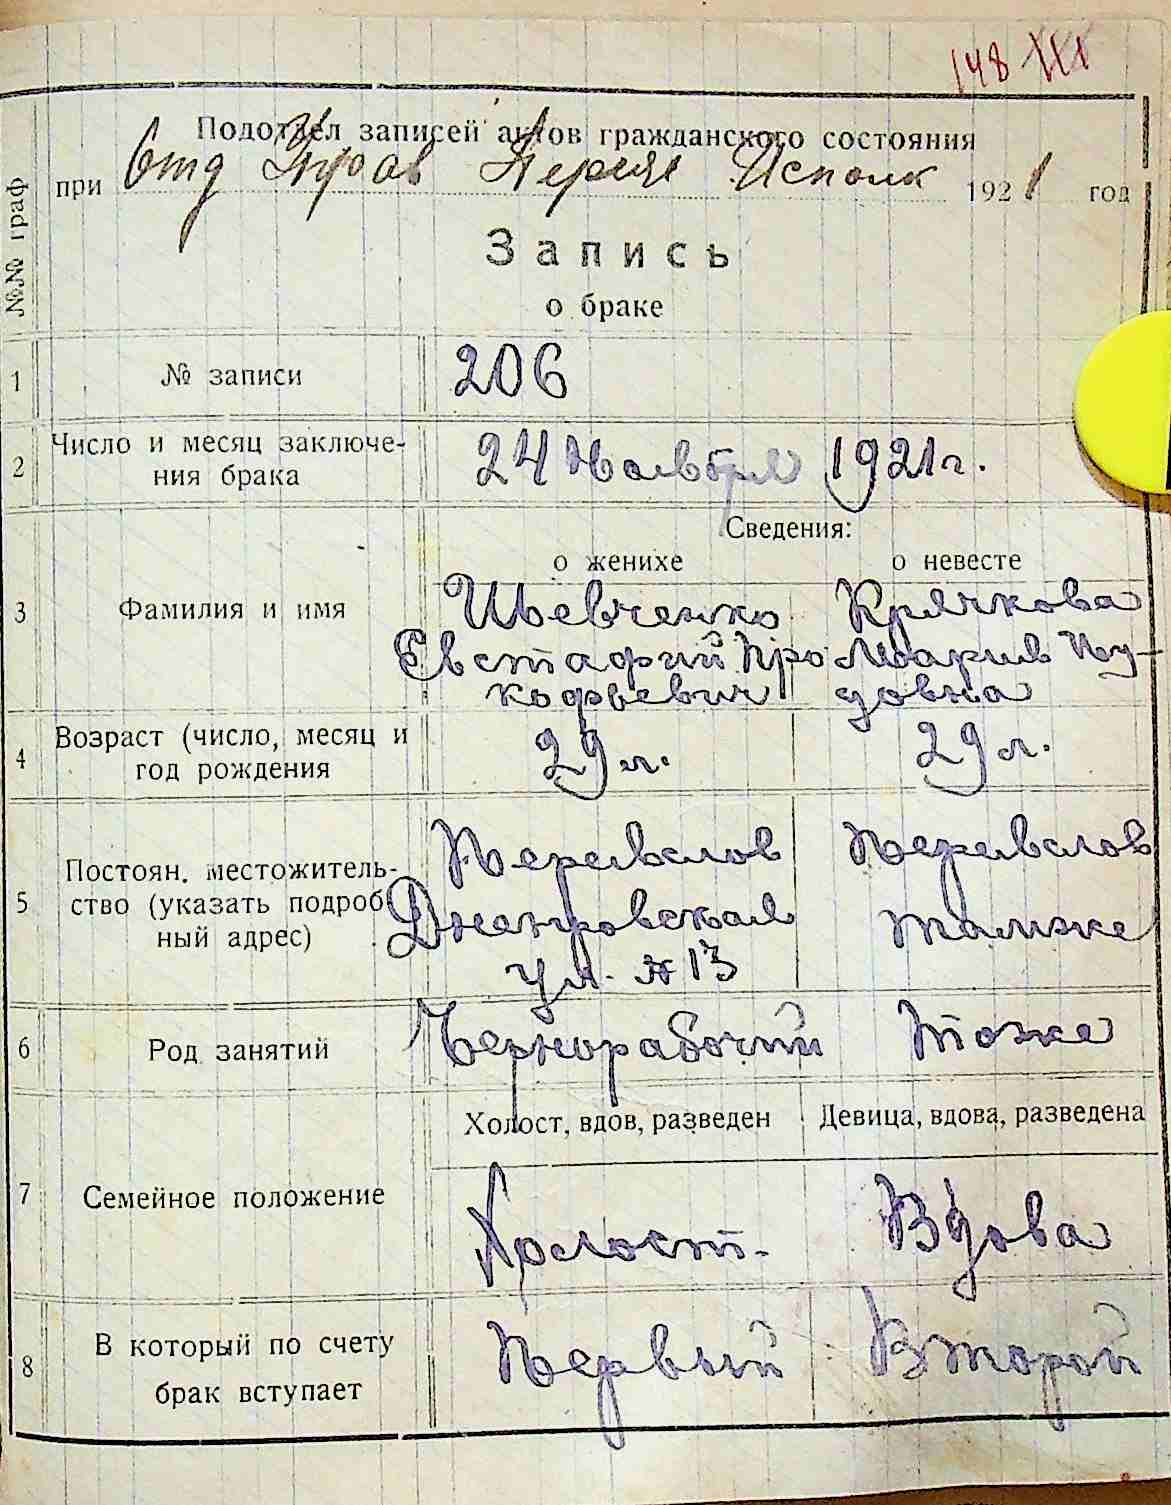 148
Подотдел записей актов гражданского состояния
при Отд Управ Исполк 1921 год
№№ граф
Запись
о браке
1 № записи 206
2 Число и месяц заключе-
ния брака 24 Ноября 1921 г.
Сведения:
о женихе о невесте
3 Фамилия и имя Шевченко Крячкова
Евстафий Про Мария Пу-
кофьевич довна
4 Возраст (число, месяц и
год рождения 29 л. 29 л.
5 Постоян. местожитель-
ство (указать подроб
ный адрес)
Перевалов Перевалов
Днепровская Тамже
ул. № 13
6 Род занятий Чернорабочий Тоже
Холост, вдов, разведен Девица, вдова, разведена
7 Семейное положение Холост. Вдова
8 В который по счету
брак вступает Первый Второй